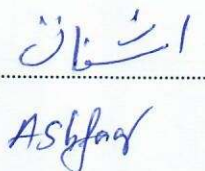 اشفاق
Ashfaq